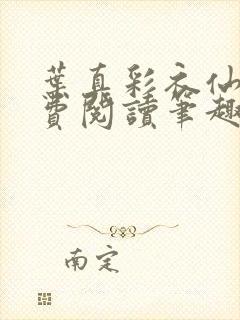 葉真彩衣仙
費閱讀筆趣
南定